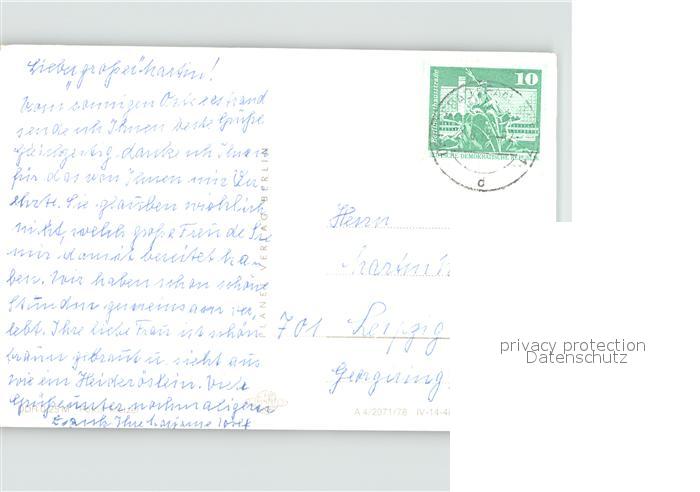 Lieber "großer" Martin!
Vom sonnigen Ostseestrand
sende ich Ihnen beste Grüße
gleichzeitig danke ich Ihnen
für das von Ihnen mir Ver-
ehrte. Sie glauben wirklich
nicht, welch große Freude Sie
mir damit bereitet ha-
ben. Wir haben schon schöne
Stunden gemeinsam ver-
lebt. Ihre liebe Frau ist schön
braun gebrannt u. sieht aus
wie ein Heideröslein. Viele
Grüße unter nochmaligem
Dank Ihre
PLANET VERLAG BERLIN
10
DEUTSCHE DEMOKRATISCHE REPUBLIK
d
Herrn
Martin
701 Leipzig
Georgiring
A 4/2071/76 IV-14-4
privacy protection
Datenschutz